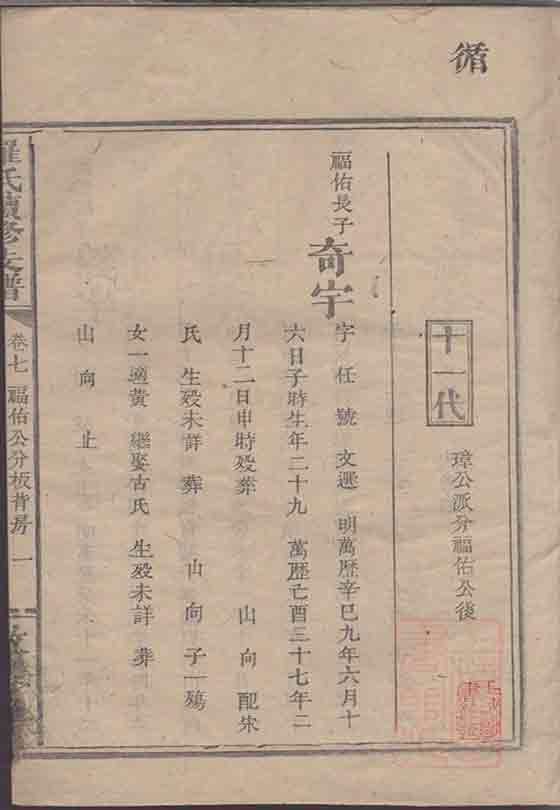 循
十一代 璋公派分福佑公後
福佑長子 奇宇
字任號文選 明萬歷辛巳九年六月十
六日子時生年二十九 萬歷亡酉三十七年二
月十二日申時殁葬 山向 配宋
氏 生殁未詳 葬 山向 子一殤
女一適黄 繼娶古氏 生殁未詳 葬
山向 止
羅氏續修支譜 卷七 福佑公分板背房 一